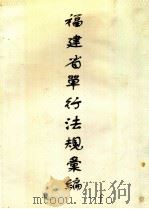 福建省單行法規彙編